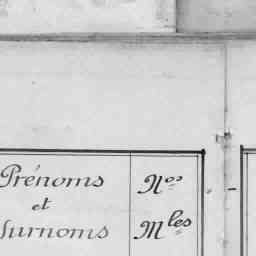 Prénoms
et
Surnoms
Nos
Mles